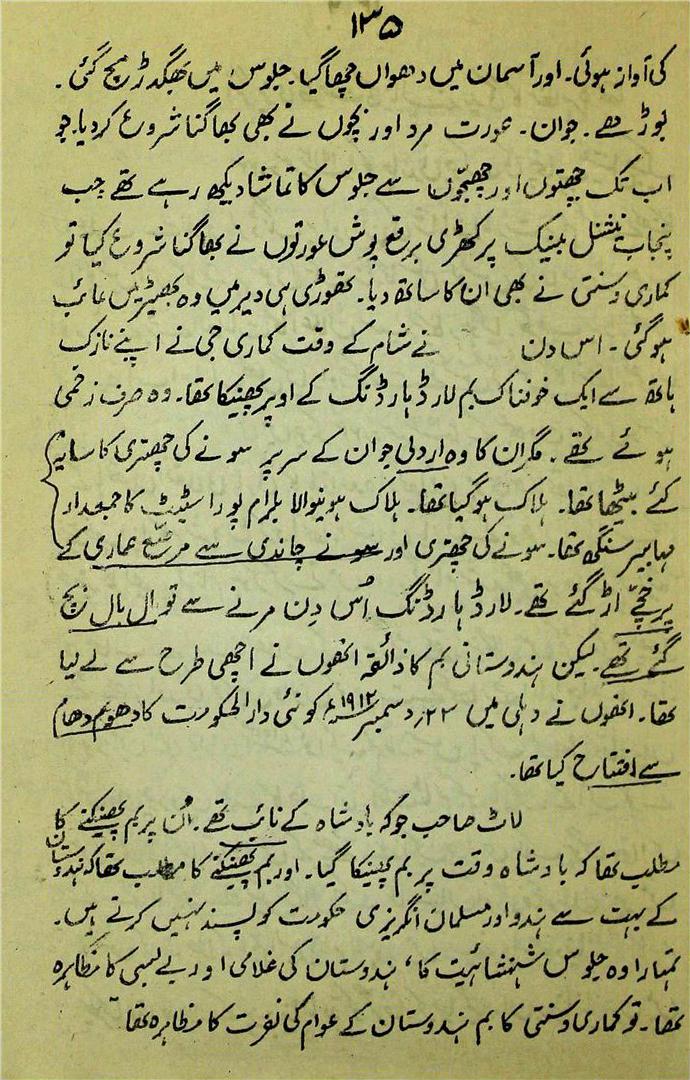 ۱۳۵
کی آواز ہوئی۔ اور آسمان میں دھواں چھا گیا۔ جلوس میں بھگدڑ مچ گئی۔
بوڑھے۔ جوان۔ عورت مرد اور بچوں نے بھی بھاگنا شروع کر دیا۔ جو
اب تک چھتوں اور چھجّوں سے جلوس کا تماشا دیکھ رہے تھے جب
پنجاب نیشنل بینک پر کھڑی برقع پوش عورتوں نے بھاگنا شروع کیا تو
کماری وسنتی نے بھی ان کا ساتھ دیا۔ تھوڑی ہی دیر میں وہ بھیڑ میں غائب
ہو گئی۔ اس دن نے شام کے وقت کماری جی نے اپنے نازک
ہاتھ سے ایک خوفناک بم لارڈ ہارڈنگ کے اوپر پھینکا تھا۔ وہ صرف زخمی
ہوئے تھے۔ مگر ان کا وہ اردلی جو ان کے سر پر سونے کی چھتری کا سایہ
کئے بیٹھا تھا۔ ہلاک ہو گیا تھا۔ ہلاک ہونیوالا بلرام پور اسٹیٹ کا جمعدار
مہابیر سنگھ تھا۔ سونے کی چھتری اور سونے چاندی سے مرصّع عماری کے
پرخچّے اڑ گئے تھے۔ لارڈ ہارڈنگ اُس دن مرنے سے تو بال بال بچ
گئے تھے۔ لیکن ہندوستانی بم کا ذائقہ انھوں نے اچھی طرح سے لے لیا
تھا۔ انھوں نے دہلی میں ۲۳؍ دسمبر ۱۹۱۲ء کو نئی دارالحکومت کا دھوم دھام
سے افتتاح کیا تھا۔
لاٹ صاحب جو کہ بادشاہ کے نائب تھے۔ اُن پر بم پھینکنے کا
مطلب تھا کہ بادشاہ وقت پر بم پھینکا گیا۔ اور بم پھینکنے کا مطلب تھا کہ ہندوستان
کے بہت سے ہندو اور مسلمان انگریزی حکومت کو پسند نہیں کرتے ہیں۔
تمہارا وہ جلوس شہنشاہیت کا، ہندوستان کی غلامی اور بے بسی کا مظاہرہ
تھا۔ تو کماری وسنتی کا بم ہندوستان کے عوام کی نفرت کا مظاہرہ تھا